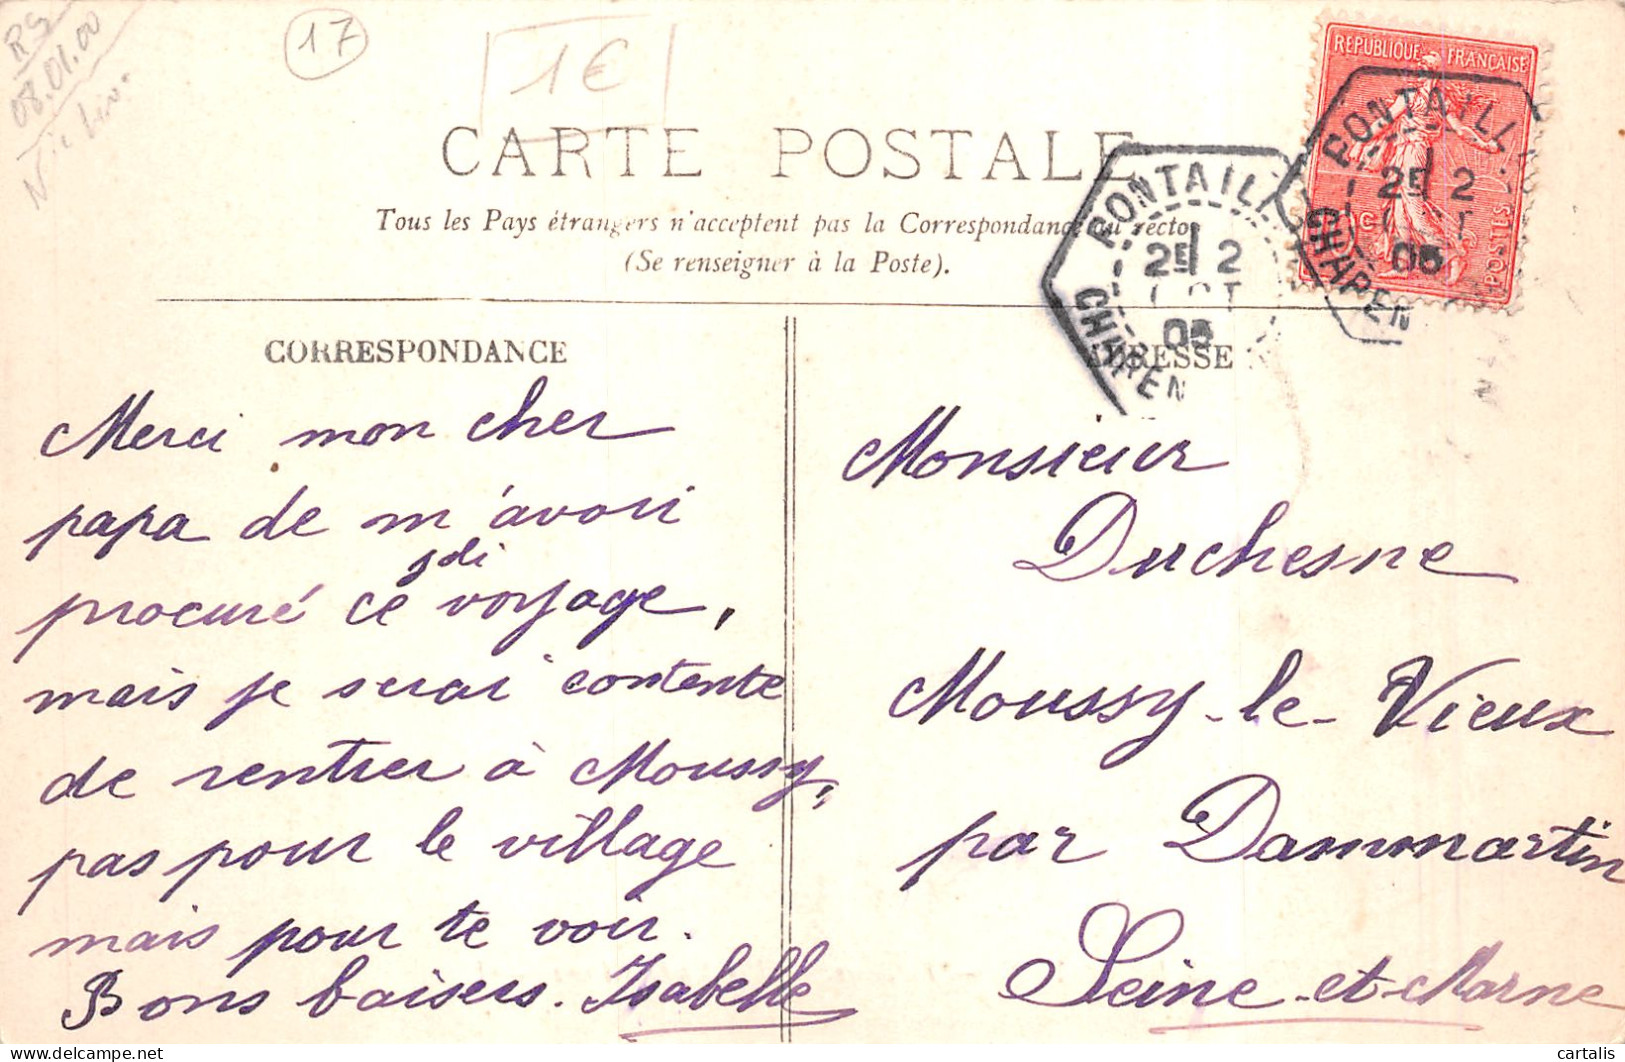 RG
08.01.00
17
1€
CARTE POSTALE
Tous les Pays étrangers n'acceptent pas la Correspondance au recto
(Se renseigner à la Poste).
REPUBLIQUE FRANÇAISE
POSTES
PONTAILL
2E 2
06
CHAREN
PONTAILL
2E 2
06
CHAREN
CORRESPONDANCE
ADRESSE
Merci mon cher
papa de m'avoir
procuré ce joli voyage,
mais je serai contente
de rentrer à Moussy,
pas pour le village
mais pour te voir.
Bons baisers. Isabelle
Monsieur
Duchesne
Moussy-le-Vieux
par Dammartin
Seine-et-Marne
cartalis